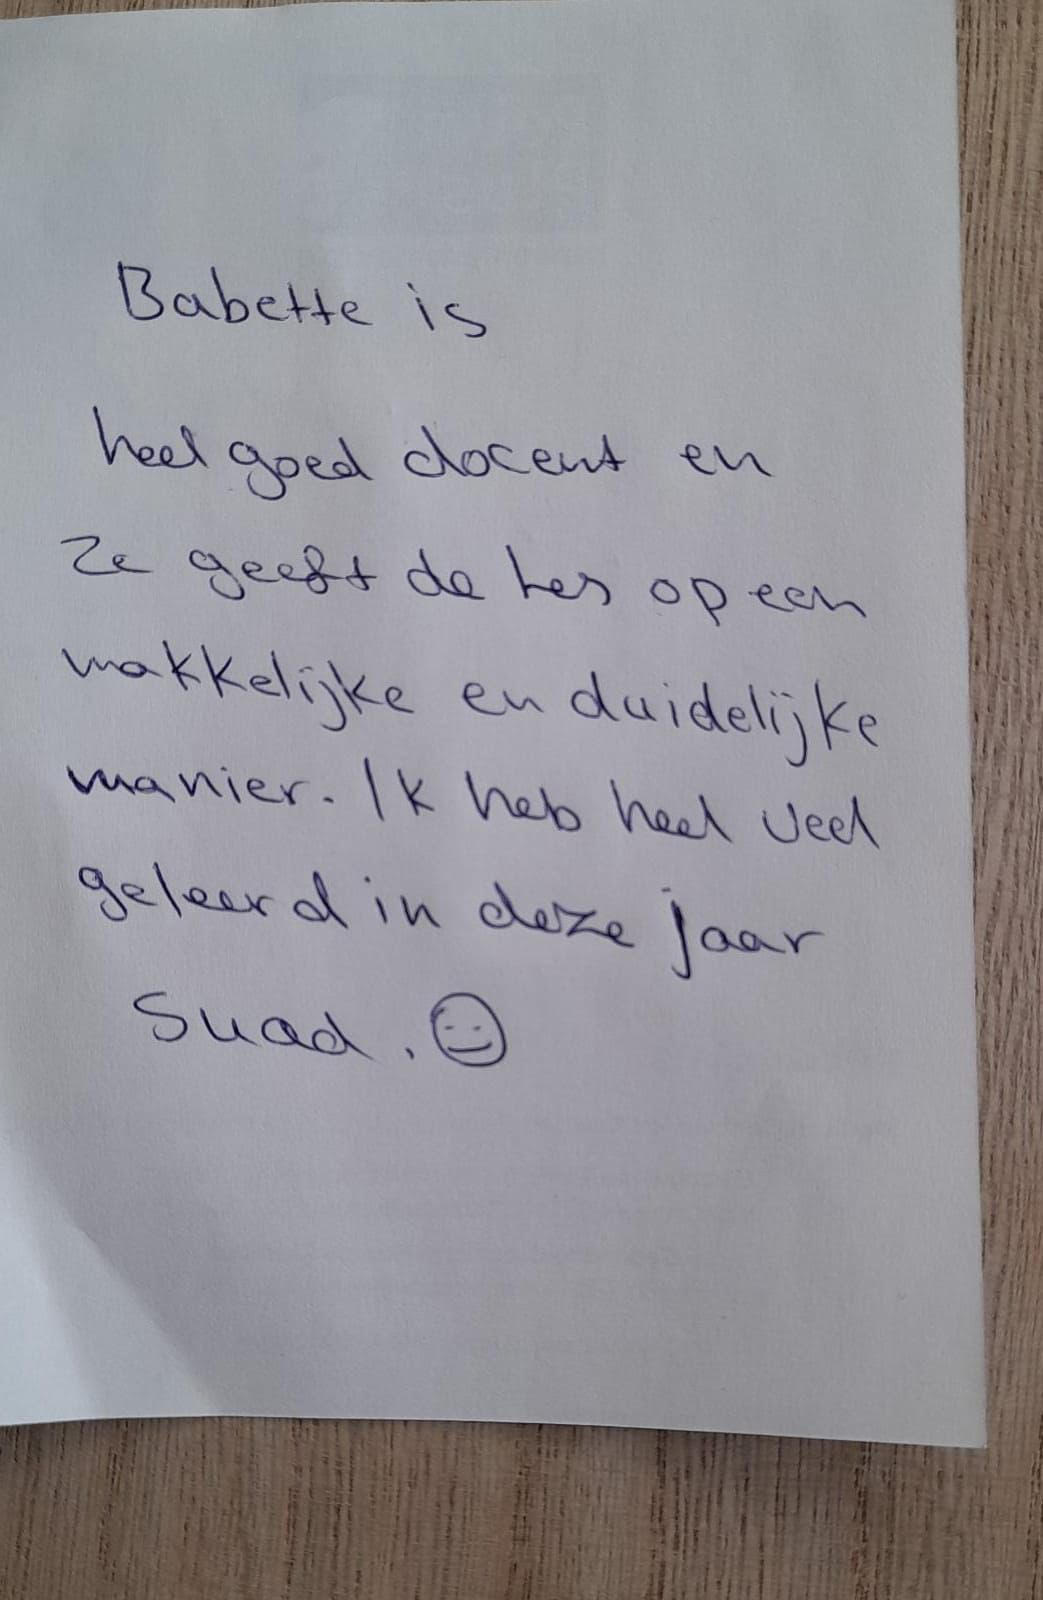 Babette is
heel goed docent en
ze geeft de les op een
makkelijke en duidelijke
manier. Ik heb heel veel
geleerd in deze jaar
Suad. ☺